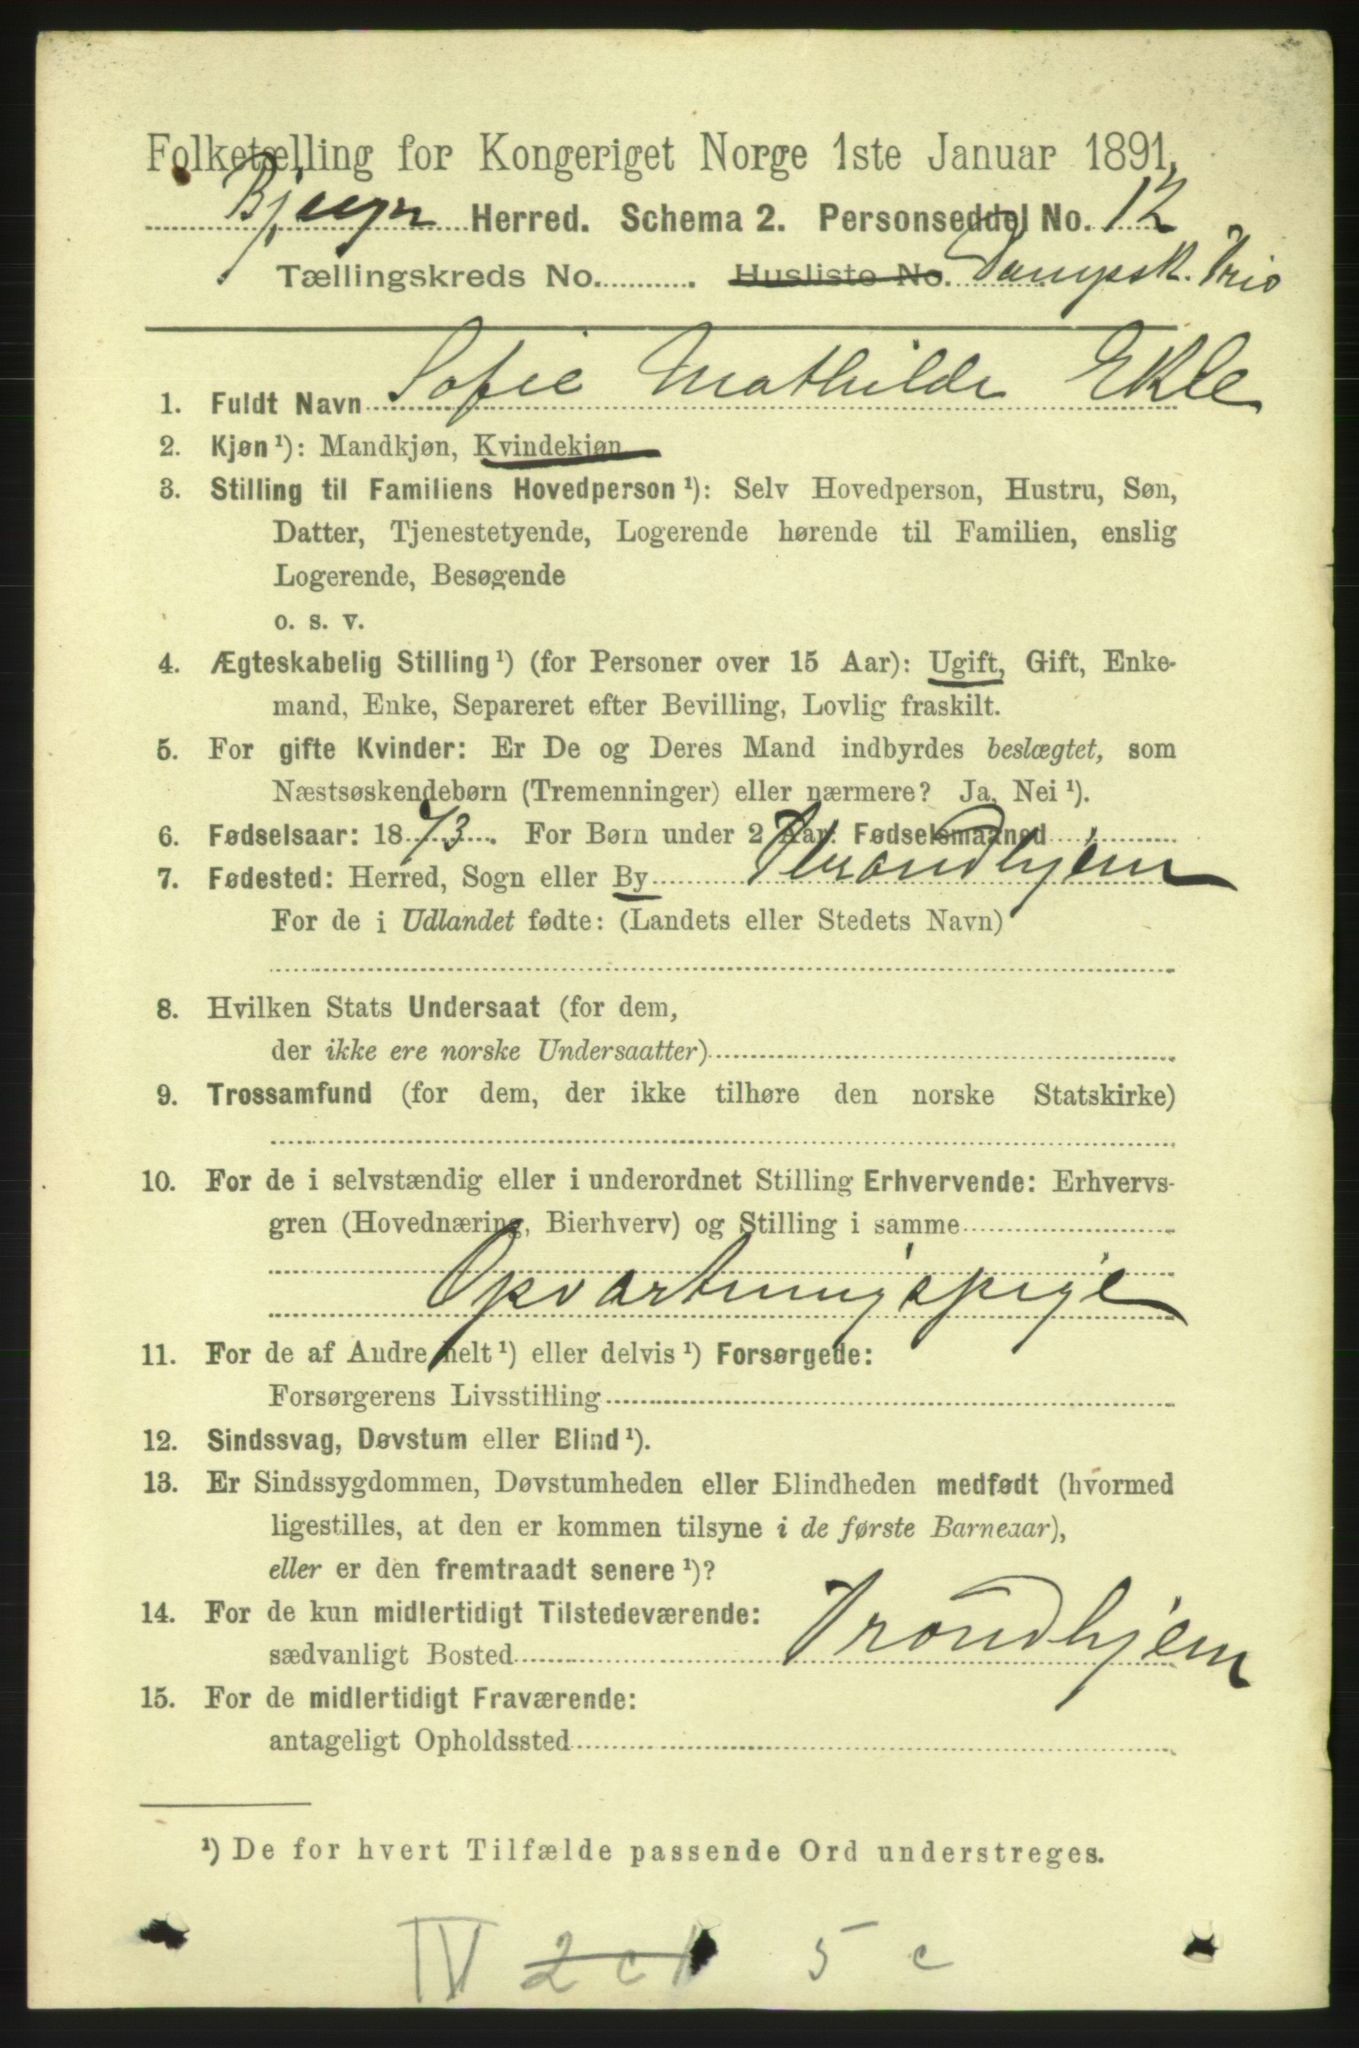 Folketælling for Kongeriget Norge 1ste Januar 1891.
Bjugn Herred. Schema 2. Personseddel No. 12
Tællingskreds No. . Husliste No. Dampsk. Trio
1. Fuldt Navn Sofie Mathilde Ekle
2. Kjøn ¹): Mandkjøn, Kvindekjøn
3. Stilling til Familiens Hovedperson ¹): Selv Hovedperson, Hustru, Søn,
Datter, Tjenestetyende, Logerende hørende til Familien, enslig
Logerende, Besøgende
o. s. v.
4. Ægteskabelig Stilling ¹) (for Personer over 15 Aar): Ugift, Gift, Enke-
mand, Enke, Separeret efter Bevilling, Lovlig fraskilt.
5. For gifte Kvinder: Er De og Deres Mand indbyrdes beslægtet, som
Næstsøskendebørn (Tremenninger) eller nærmere? Ja, Nei ¹).
6. Fødselsaar: 1873. For Børn under 2 Aar: Fødselsmaaned
7. Fødested: Herred, Sogn eller By Throndhjem
For de i Udlandet fødte: (Landets eller Stedets Navn)
8. Hvilken Stats Undersaat (for dem,
der ikke ere norske Undersaatter)
9. Trossamfund (for dem, der ikke tilhøre den norske Statskirke)
10. For de i selvstændig eller i underordnet Stilling Erhvervende: Erhvervs-
gren (Hovednæring, Bierhverv) og Stilling i samme
Opvartningspige
11. For de af Andre helt ¹) eller delvis ¹) Forsørgede:
Forsørgerens Livsstilling
12. Sindssvag, Døvstum eller Blind ¹).
13. Er Sindssygdommen, Døvstumheden eller Blindheden medfødt (hvormed
ligestilles, at den er kommen tilsyne i de første Barneaar),
eller er den fremtraadt senere ¹)?
14. For de kun midlertidigt Tilstedeværende:
sædvanligt Bosted Trondhjem
15. For de midlertidigt Fraværende:
antageligt Opholdssted
¹) De for hvert Tilfælde passende Ord understreges.
IV 5 c